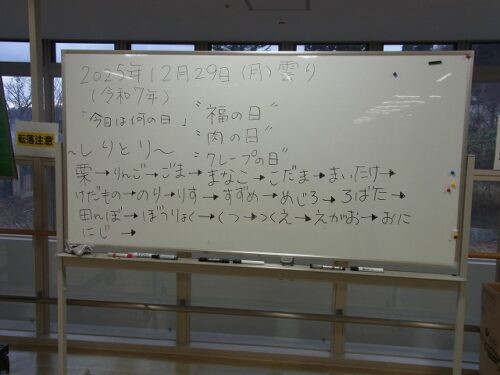 2025年12月29日(月)雲り
(令和7年)
「今日は何の日」
"福の日"
"肉の日"
"クレープの日"
転落注意
~しりとり~
栗→りんご→ごま→まなこ→こだま→まいたけ→
けだもの→のり→りす→すずめ→めじろ→ろばた→
田んぼ→ぼうりょく→くつ→つくえ→えがお→おに
にじ→